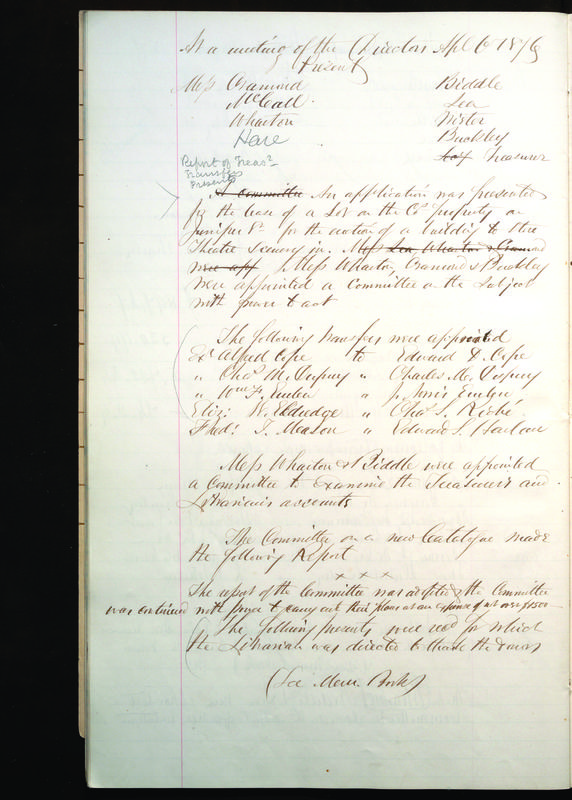 At a meeting of the Directors Apl 6 1876
Present
Mess Cramond Biddle
McCall Lea
Wharton Wister
Hare Buckley
Lea Treasurer
Report of Treasr
Transfers
Presents
A committee An application was presented
for the lease of a Lot on the Cos property on
Juniper St for the erection of a building to store
Theatre Scenery in. Mess Lea, Wharton & Cramond
were app Mess Wharton, Cramond & Buckley
were appointed a Committee on the Subject
with power to act
The following transfers were appointed
Ex Alfred Cope to Edward D. Cope
" Chas M. " Charles M.
" Wm F. Emlen " J. Norris Emlen
Eliz: W. Eldredge " Chas S.
Fred: T. Mason " Edward S.
Mess Wharton & Biddle were appointed
a Committee to examine the Treasurer's and
Librarian's accounts
The Committee on a new Catalogue made
the following Report
x x x
The report of the Committee was adopted & the Committee
was continued with power to carry out their plans at an expense of not over $1500
The following presents were recd for which
the Librarian was directed to thank the donors
(See Mem. Book)